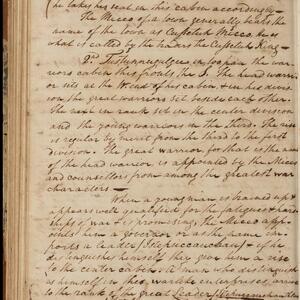 he takes his seat in this cabin accordingly—
The Micco of a town generally bears the
name of the town as Cussetuh Micco, he is
what is called by the traders the Cussetuh King—
2nd Tustunnuggee in too pau the war-
riors cabin this fronts the S. The head warri-
or sits at the W. end of his cabin & in his divis-
ion the great warriors set beside each other.
The next in rank set in the center division
and the young warriors in the third. The rise is
regular by merit from the third to the first
division. The great warrior, for that is the name
of the head warrior is appointed by the Micco
and counsellors from among the greatest war
characters—
When a young man is trained up &
appears well qualified for the fatigues & hard
ships of war & is promising, the Micco app-
oints him a governor or as the name im-
ports a leader & if he
distinguishes himself they give him a rise
to the center cabin. A man who distinguish-
es himself in these warlike enterprises, arrives
to the rank of the great Leader